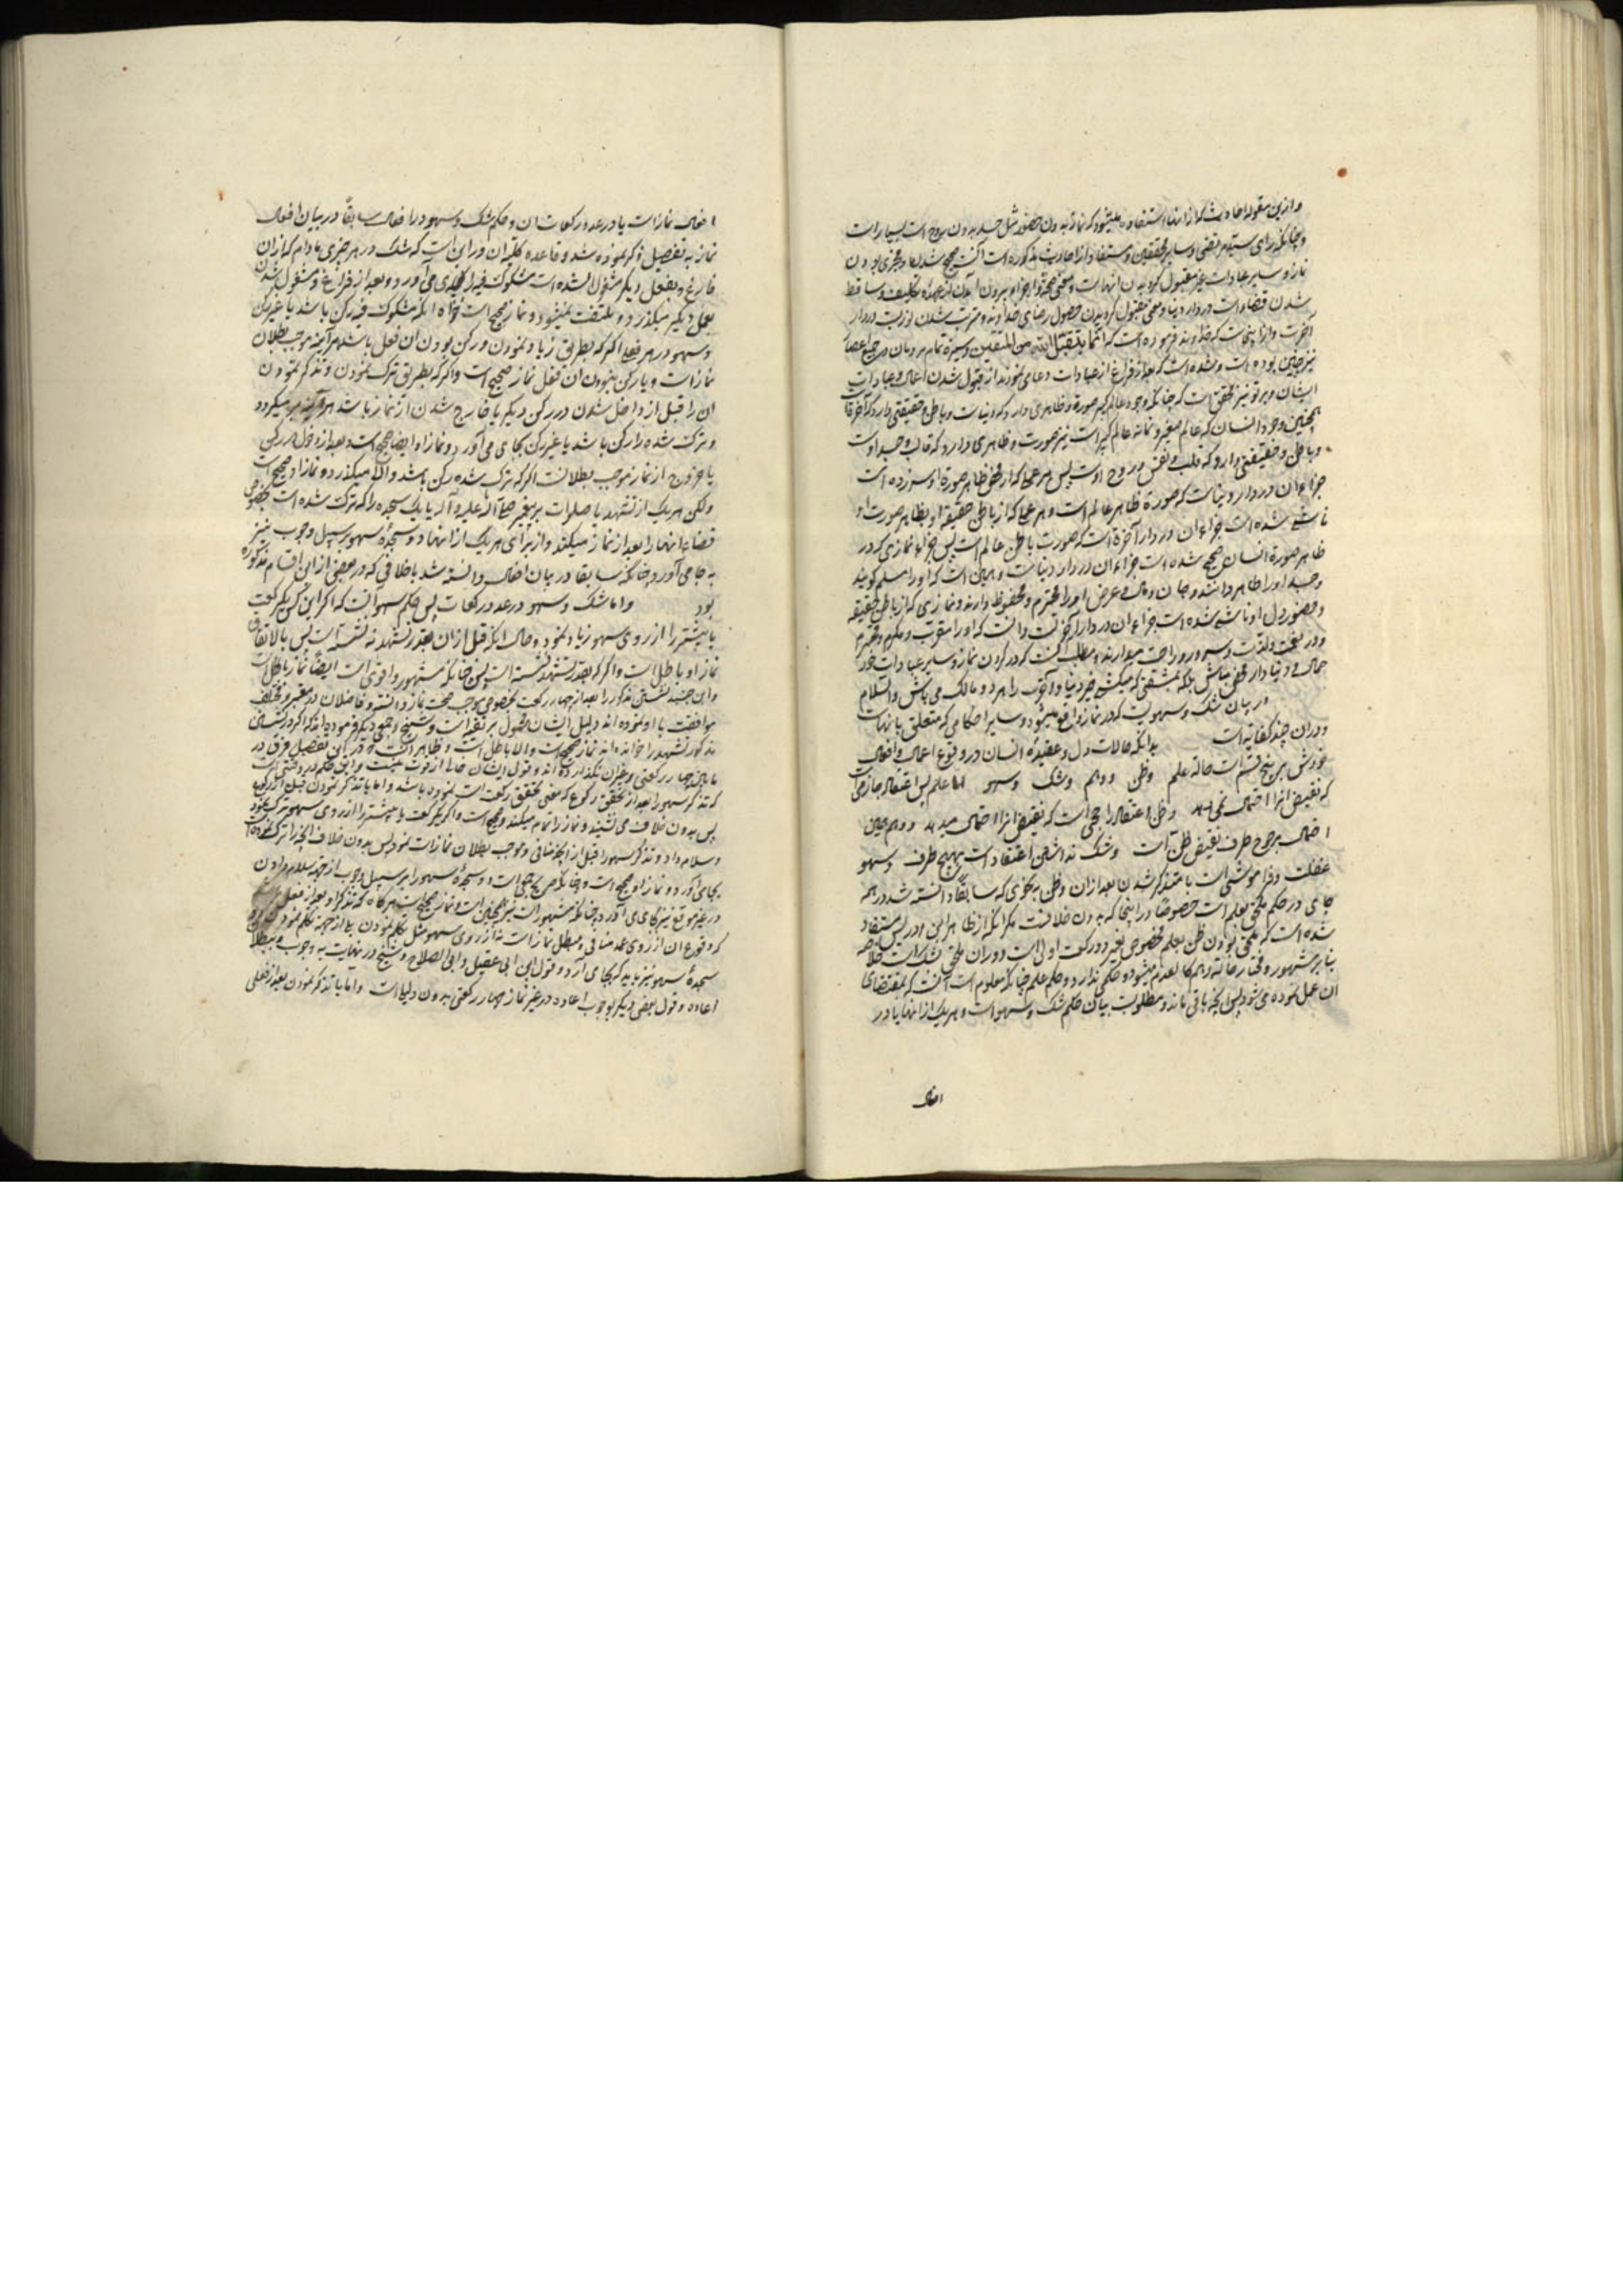 وازین مقوله احادیث که از انها استفاده میشود که نماز بدون حضور مثل جسد بدون روح است بسیار است
وچنانکه رای سید مرتضی وسایر محققین ومستفاد از احادیث مذکوره است آنست که صحیح شدن
نماز وسایر عبادات غیر مقبول کردیدن انهاست ومعنی صحة واجزاء بیرون آمدن از عهدهٔ تکلیف وساقط
شدن قضاء است در دار دنیا ومعنی مقبول کردیدن حصول رضای خداوند ومترتب شدن ثوابست در دار
آخرت وازاینجاست که خداوند فرموده است که انما یتقبل الله من المتقین وسیرة تمام مردمان در جمیع اعصار
نیز چنین بوده است وشده است که بعد از فراغ از عبادات دعا می نمودند از قبول شدن اعمال وعبادات
ایشان وبر تو نیز مخفی است که چنانکه وجود عالم کبیر صورة وظاهری دارد که دنیاست وباطن وحقیقتی دارد که آخرة است
همچنین وجود انسان که عالم صغیر ونمانهٔ عالم کبیر است نیز صورت وظاهری دارد که قالب وجسد اوست
وباطن وحقیقتی دارد که قلب ونفس وروح اوست پس هر عملی که از محض ظاهر صورة او سر زده است
جزاء ان در دار دنیاست که صورة ظاهر عالم است وهر عملی که از باطن حقیقة او بظاهر صورت او
ناشی شده است جزاء ان در دار آخرة است که صورت باطن عالم است پس جزاء نمازی که در
ظاهر صورة انسان صحیح شده است جزاء ان در دار دنیاست وهمین است که او را مسلم کویند
وجسد او را طاهر دانند وجان ومال وعرض او را محترم ومحفوظ دارند ونمازی که از باطن حقیقة
وحضور دل او ناشی شده است جزاء ان در دار آخرتست وآنست که او را مقرب ومکرم ومحترم
ودر نعمت ولذت وسرور وراحت میدارند ومطلب آنست که در کردن نماز وسایر عبادات خود
حمال دنیادار محض مباش بلکه بمشقتی که میکشی خیر دنیا وآخرت را هر دو مالک می باش والسلام
در بیان شک وسهویست که در نماز واقع میشود وسایر احکامی که متعلق بانهاست
ودران چند کفایه است بدانکه حالات دل وعقیدهٔ انسان در وقوع اعمال وافعال
خودش بر پنج قسم است حالة علم وظن ووهم وشک وسهو اما علم پس اعتقاد جازمیست
که نقیض انرا احتمال نمیدهد وظن اعتقاد راجحی است که نقیض انرا احتمال میدهد ووهم همین
احتمال مرجوح طرف نقیض ظن است وشک نداشتن اعتقاد است بهیچ طرف وسهو
غفلت وفراموشی است با متذکر شدن بعد از ان وظن بنحوی که سابقًا دانسته شد در همه
جای در حکم ملحق بعلم است خصوصًا در اینجا که بدون خلافست مکر انکه از ظاهر ابن ادریس مستفاد
شده است که ملحق بودن ظن بعلم مخصوص بغیر دو رکعت اولی است ودران ملحق بشک است خلافا
بنا بر مشهور وفی حالة وهم کالعدم میشود وحکمی ندارد وحکم علم چنانکه معلوم است آنست که بمقتضای
ان عمل نموده می شود پس انچه باقی ماند ومطلوب بیان حکم شک وسهو است وهریک از انها یا در
افعال
افعال نماز است یا در عدد رکعات ان وحکم شک وسهو در افعال سابقًا در بیان افعال
نماز به تفصیل ذکر نموده شد وقاعده کلیه ان در این است که شک در هر چیزی مادام که از ان
فارغ وبفعل دیکر مشغول نشده است مشکوک فیه را بجای می آورد وبعد از فراغ ومشغول شدن
بعمل دیکر میکذرد وملتفت نمیشود ونماز صحیح است خواه انکه مشکوک فیه رکن باشد یا غیر رکن
وسهو در هر فعل اکر که بطریق زیاد نمودن ورکن بودن ان فعل باشد هر آینه موجب بطلان
نماز است وبا رکن نبودن ان فعل نماز صحیح است واکر که بطریق ترک نمودن وتذکر نمودن
ان را قبل از داخل شدن در رکن دیکر یا خارج شدن از نماز باشد هر آینه بر میکردد
وترک شده را رکن باشد یا غیر رکن بجای می آورد ونماز او ایضا صحیح است وبعد از دخول در رکن
یا خروج از نماز موجب بطلانست اکر که ترک شده رکن باشد والا میکذرد ونماز او صحیح است
ولکن هریک از تشهد یا صلوات بر پیغمبر صلی الله علیه وآله یا یک سجده را که ترک شده است بخصوص
قضاء انها را بعد از نماز میکند واز برای هریک از انها دو سجدهٔ سهو بر سبیل وجوب نیز
به جا می آورد چنانکه سابقا در بیان افعال دانسته شد باخلافی که در بعضی از این اقسام مذکوره
بود واما شک وسهو در عدد رکعات پس حکم سهو آنست که اکر این کس یک رکعت
یا بیشتر را از روی سهو زیاد نمود وحال انکه قبل از ان بقدر تشهد نه نشسته است پس بالاتفاق
نماز او باطل است واکر که بقدر تشهد نشسته است پس چنانکه مشهور واقوی است ایضًا نماز باطل است
وابن جنید نشستن مذکور را بعد از چهار رکعت بخصوص موجب صحت نماز دانسته وفاضلان در معتبر ومختلف
موافقت با او نموده اند ودلیل ایشان محمول بر تقیه است وشیخ وجمعی دیکر فرموده اند که اکر در نشستن
مذکور تشهد را خوانده اند نماز صحیح است والا باطل است وظاهر آنست که در این تفصیل فرق در
مابین چهار رکعتی وغیر ان نکذارده اند وقول ایشان خالی از قوت نیست واین حکم در وقتی است
که تذکر سهو را بعد از تحقق رکوع که معنی تحقق رکعت است نموده باشد واما با تذکر نمودن قبل از رکوع
پس بدون خلاف می نشیند ونماز را تمام میکند وصحیح است واکر یک رکعت یا بیشتر را از روی سهو ترک نمود
وسلام داد وتذکر سهو را قبل از انچه منافی وموجب بطلان نماز است نمود پس بدون خلاف انچه را ترک نموده است
بجای آورد ونماز او صحیح است وچنانکه صریح جمعی است دو سجدهٔ سهو را بر سبیل وجوب از جهة سلام دادن
در غیر موقع نیز بجای می آورد چنانکه مشهور است نیز همچنین است ونماز صحیح است هرکاه که تذکر او بعد از فعلی باشد
که وقوع ان از روی عمد منافی ومبطل نماز است نه از روی سهو مثل تکلم نمودن بلی از جهة تکلم نمودن دو
سجدهٔ سهو نیز باید که بجای آرد وقول ابن ابی عقیل وابی الصلاح وشیخ در نهایت به وجوب وببطلان
اعاده وقول بعضی دیکر بوجوب اعاده در غیر نماز چهار رکعتی بدون دلیل است واما با تذکر نمودن بعد از فعلی